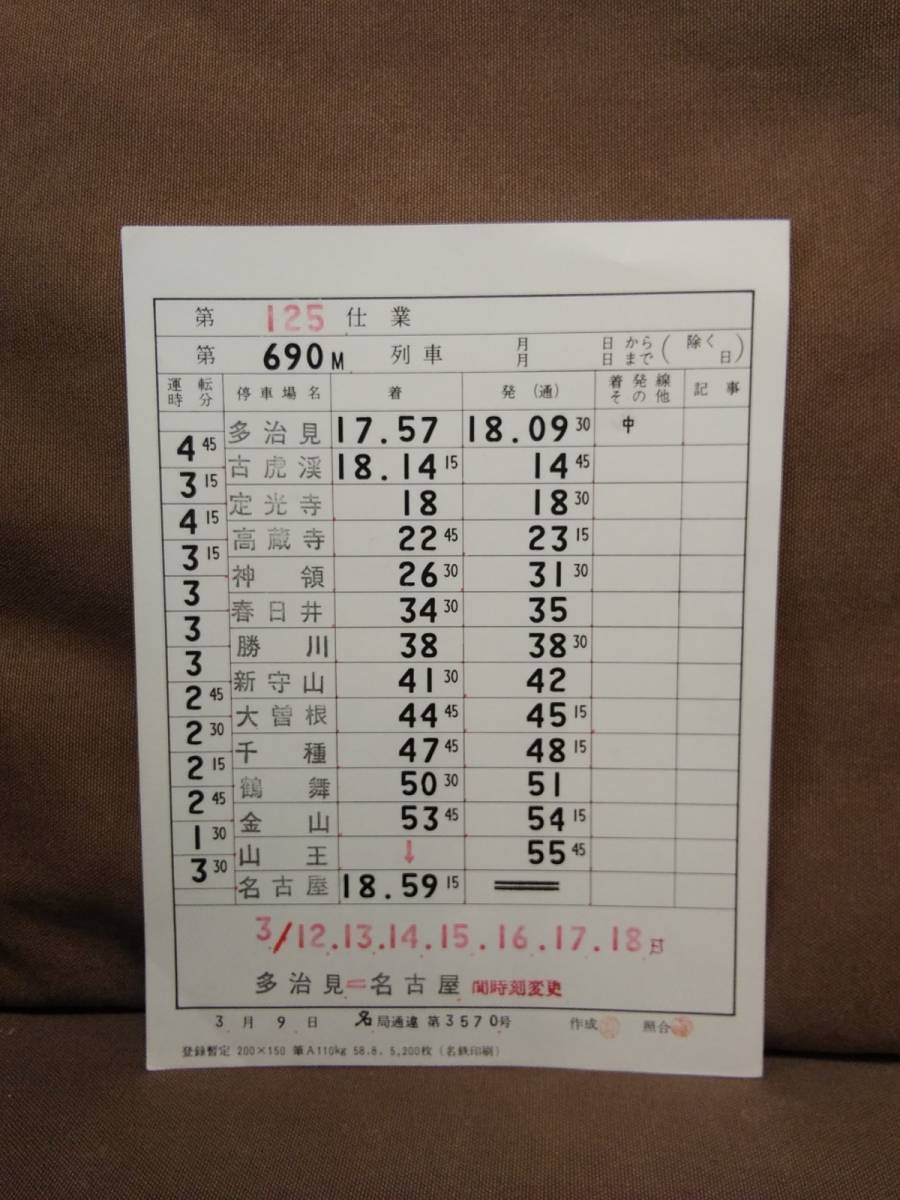 第 125 仕業
第 690M 列車 月 日から ( 除く
月 日まで 日 )
運転時分 停車場名 着 発(通) 着発線その他 記事
多治見 17.57 18.09 30 中
4 45
古虎渓 18.14 15 14 45
3 15
定光寺 18 18 30
4 15
高蔵寺 22 45 23 15
3 15
神領 26 30 31 30
3
春日井 34 30 35
3
勝川 38 38 30
3
新守山 41 30 42
2 45
大曽根 44 45 45 15
2 30
千種 47 45 48 15
2 15
鶴舞 50 30 51
2 45
金山 53 45 54 15
1 30
山王 ↓ 55 45
3 30
名古屋 18.59 15 ═
3/12.13.14.15.16.17.18日
多治見=名古屋 間時刻変更
3月9日 名局通達 第3570号 作成 照合
登録暫定 200×150 筆A110kg 58.8. 5,200枚 (名鉄印刷)